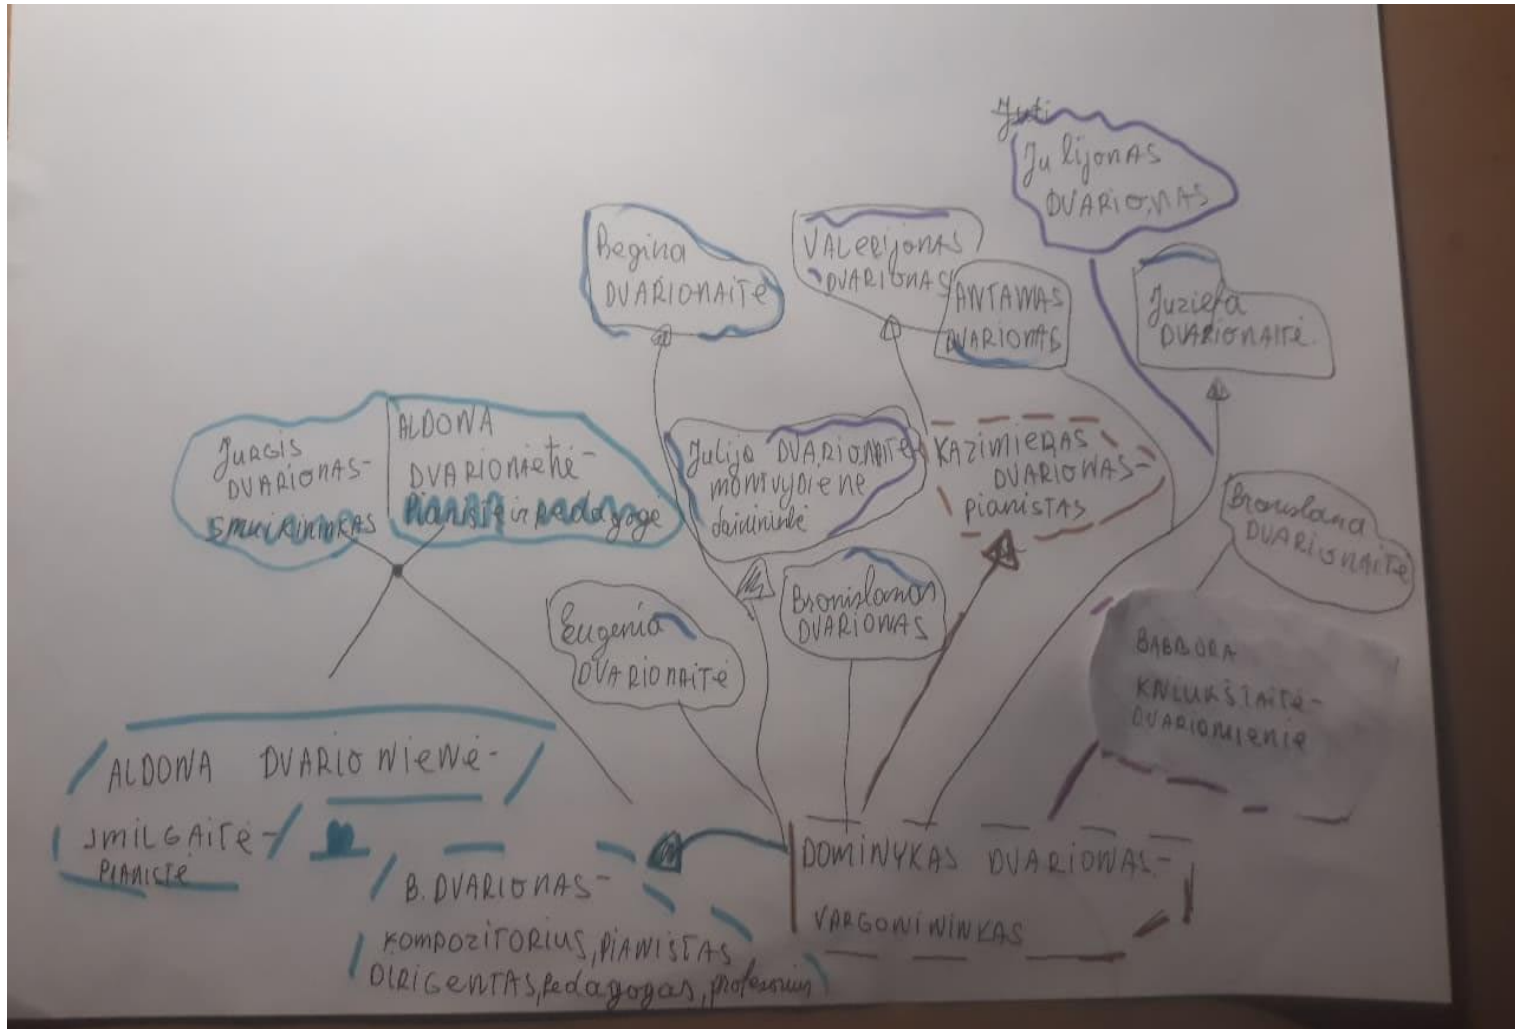 Julijonas
DVARIONAS
Regina
DVARIONAITĖ
VALERIJONAS
DVARIONAS
ANTANAS
DVARIONAS
Juziefa
DVARIONAITĖ
JURGIS
DVARIONAS-
SMUIKININKAS
ALDONA
DVARIONIENĖ-
Pianistė ir pedagogė
Julija DVARIONAITĖ
montvydienė
dainininkė
KAZIMIERAS
DVARIONAS-
pianistas
Bronislava
DVARIONAITĖ
Eugenia
DVARIONAITĖ
Bronislovas
DVARIONAS
BARBORA
DVARIONIENIE
ALDONA DVARIONIENĖ-
SMILGAITĖ-
PIANISTĖ
B. DVARIONAS-
KOMPOZITORIUS, PIANISTAS
DIRIGENTAS, pedagogas, profesorius
DOMINYKAS DVARIONAS-
VARGONININKAS